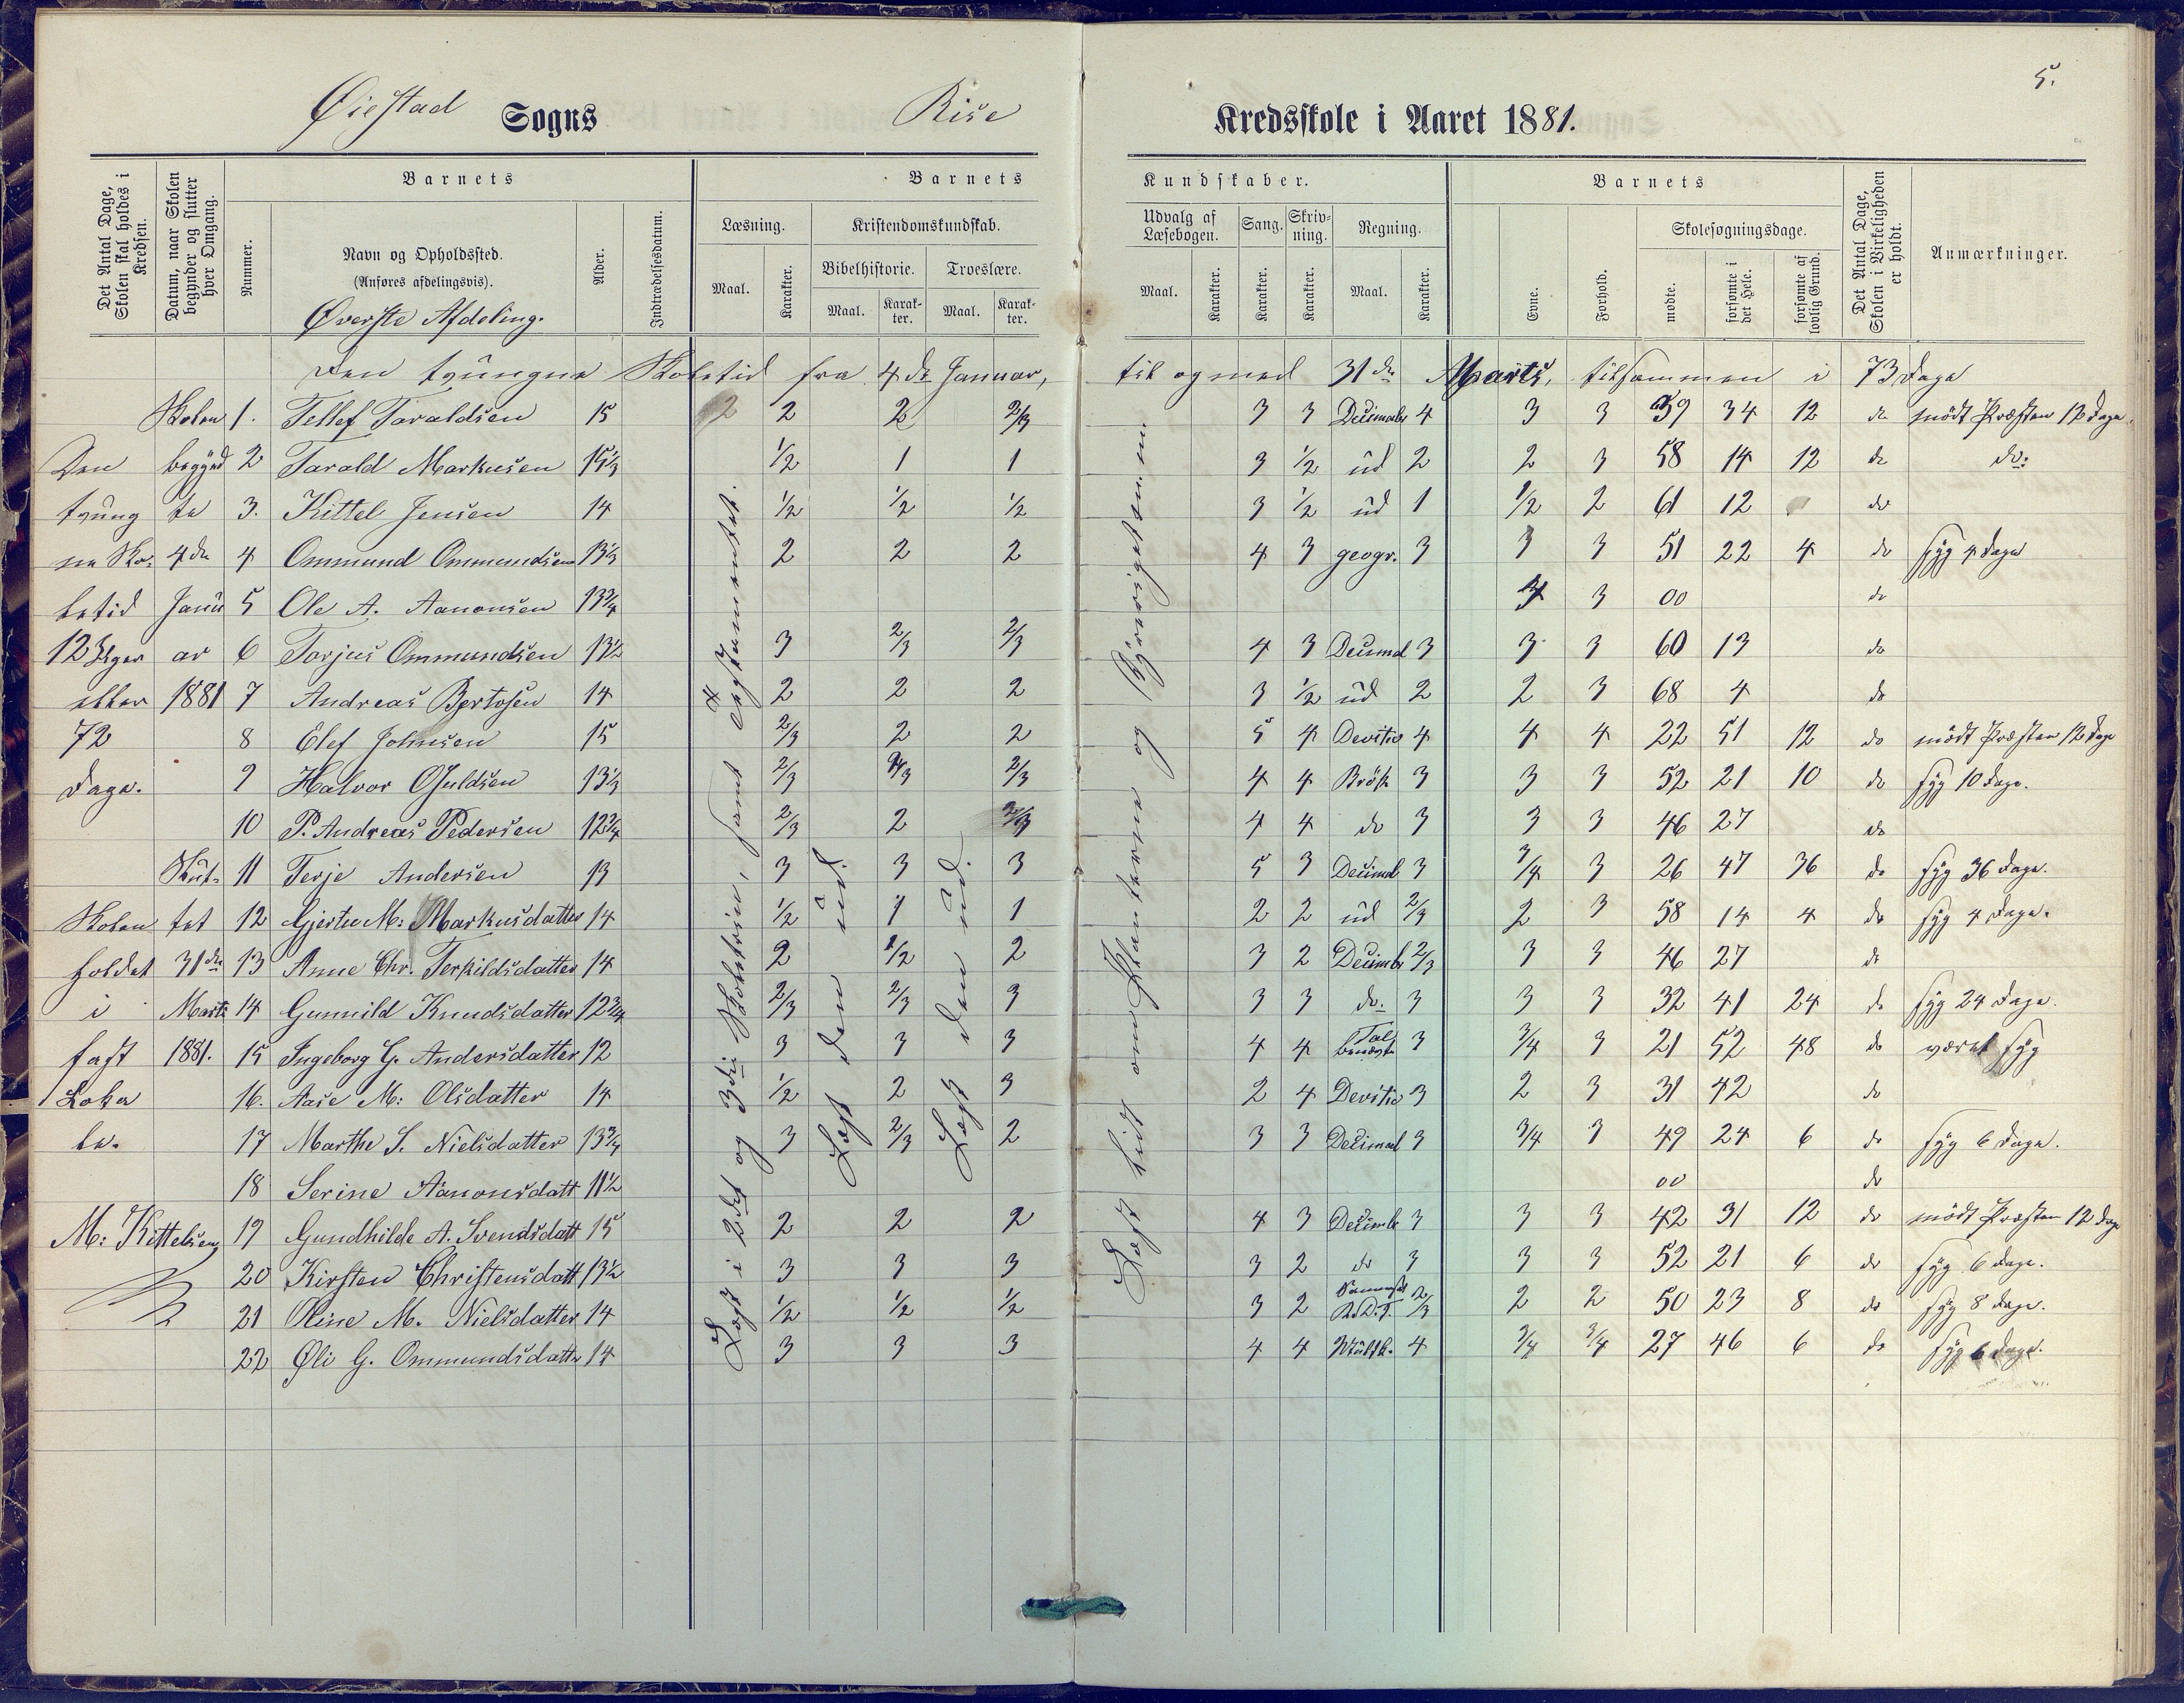 5.
Øiestad Sogns Rise Kredsskole i Aaret 1881.
Det Antal Dage, Skolen skal holdes i Kredsen.
Datum, naar Skolen begynder og slutter hver Omgang.
Barnets
Nummer.
Navn og Opholdssted.
(Anføres afdelingsvis).
Øverste Afdeling.
Alder.
Indtrædelsesdatum.
Barnets Kundskaber.
Læsning.
Maal. Karakter.
Kristendomskundskab.
Bibelhistorie. Troeslære.
Maal. Karakter. Maal. Karakter.
Udvalg af Læsebogen.
Maal. Karakter.
Sang.
Karakter.
Skrivning.
Karakter.
Regning.
Maal. Karakter.
Barnets
Evne. Forhold.
Skolesøgningsdage.
mødte. forsømte i det Hele. forsømte af lovlig Grund.
Det Antal Dage, Skolen i Virkeligheden er holdt.
Anmærkninger.
Den tvungne Skoletid fra 4de Januar, til og med 31de Marts, tilsammen i 73 Dage
Skolen 1. Tellef Taraldsen 15 2 2 2 2/3 3 3 Decimalb 4 3 3 39 34 12 do mödt Præsten 12 Dage.
Den begynd 2 Tarald Markusen 15 1/3 1/2 1 1 3 1/2 ud 2 2 3 58 14 12 do do:
tvung te 3. Kittel Jensen 14 1/2 1/2 1/2 3 1/2 ud 1 1/2 2 61 12 do
ne Sko- 4de 4 Ommund Ommundsen 13 1/3 2 2 2 4 3 geogr. 3 3 3 51 22 4 do syg 4 Dage
letid Janu 5 Ole A. Aanonsen 13 3/4 4 3 00 do
12 Uger ar 6 Torjus Ommundsen 13 1/2 3 2/3 2/3 4 3 Decimal 3 3 3 60 13 do
eller 1881 7 Andreas Bertosen 14 2 2 2 3 1/2 ud 2 2 3 68 4 do
72 8 Elef Johnsen 15 2/3 2 2 5 4 Devitio 4 4 4 22 51 12 do mödt Præsten 12 Dage
Dage. 9 Halvor Osuldsen 13 1/3 2/3 2/3 2/3 4 4 Brök 3 3 3 52 21 10 do syg 10 Dage.
10 P. Andreas Pedersen 12 3/4 2/3 2 2/3 4 4 do 3 3 3 46 27 do
Slut- 11 Terje Andersen 13 3 3 3 5 3 Decimal 3 3/4 3 26 47 36 do syg 36 Dage.
Skolen tet 12 Gjertu M: Markusdatter 14 1/2 1 1 2 2 ud 2/3 2 3 58 14 4 do syg 4 Dage.
holdet 31de 13 Anne Chr. Terkildsdatter 14 2 1/2 2 3 2 Decimb 2/3 3 3 46 27 do
i Marts 14 Gunnild Knudsdatter 12 3/4 2/3 2/3 3 3 3 do. 3 3 3 32 41 24 do syg 24 Dage.
fast 1881. 15 Ingeborg G. Andersdatter 12 3 3 3 4 4 Tal benævnt 3 3/4 3 21 52 48 do været syg
Loka 16. Aase M: Olsdatter 14 1/2 2 3 2 4 Devitio 3 2 3 31 42 do
le. 17 Marthe S. Nielsdatter 13 3/4 3 2/3 2 3 3 Decimal 3 3/4 3 49 24 6 do syg 6 Dage.
18 Serine Aanonsdatt 11 1/2 00 do
M: Kittelsen 19 Gundhilde A. Svendsdatt 15 2 2 2 4 3 Decimb 3 3 3 42 31 12 do mödt Præsten 12 Dage
20 Kirsten Christensdatt 13 1/2 3 3 3 3 2 do 3 3 3 52 21 6 do syg 6 Dage.
21 Oline M. Nielsdatter 14 1/2 1/2 1/2 3 2 R.D.T. 2/3 2 2 50 23 8 do syg 8 Dage.
22 Øli G. Ommundsdatte 14 3 3 3 4 4 Multk. 4 3/4 3/4 27 46 6 do syg 6 Dage.
Læst i 2det og 3die Skoletrin, samt Testamentet.
Læst den ud.
Læst den ud.
Læst lidt om Planterne og